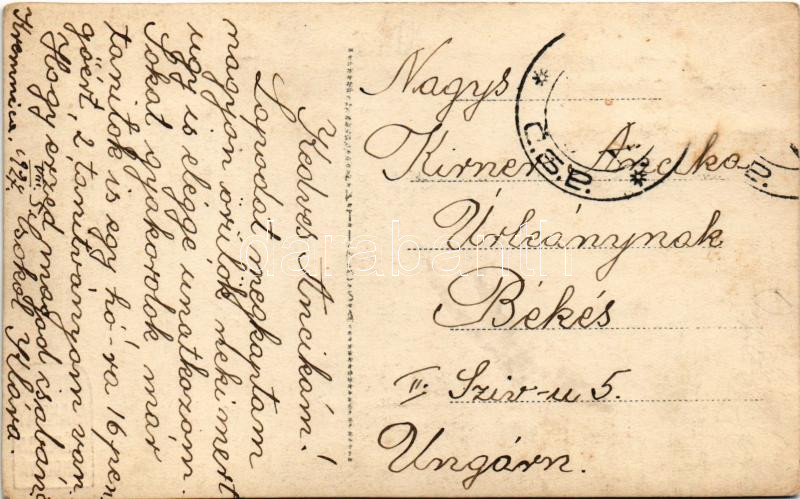 Kedves Ancikám!
Lapodat megkaptam
nagyon örülök neki mert
ugy is eléggé unatkozom.
Sokat gyakorolok már
tanitok is egy hó-ra 16 pen
göért, 2 tanitványom van.
Hogy érzed magad csabán
csókol Klára.
Kremnica,
Nagys
Kirner Ancika
Úrleánynak
Békés
II. Sziv-u 5.
Ungarn.
Č.S.P.
darabanth